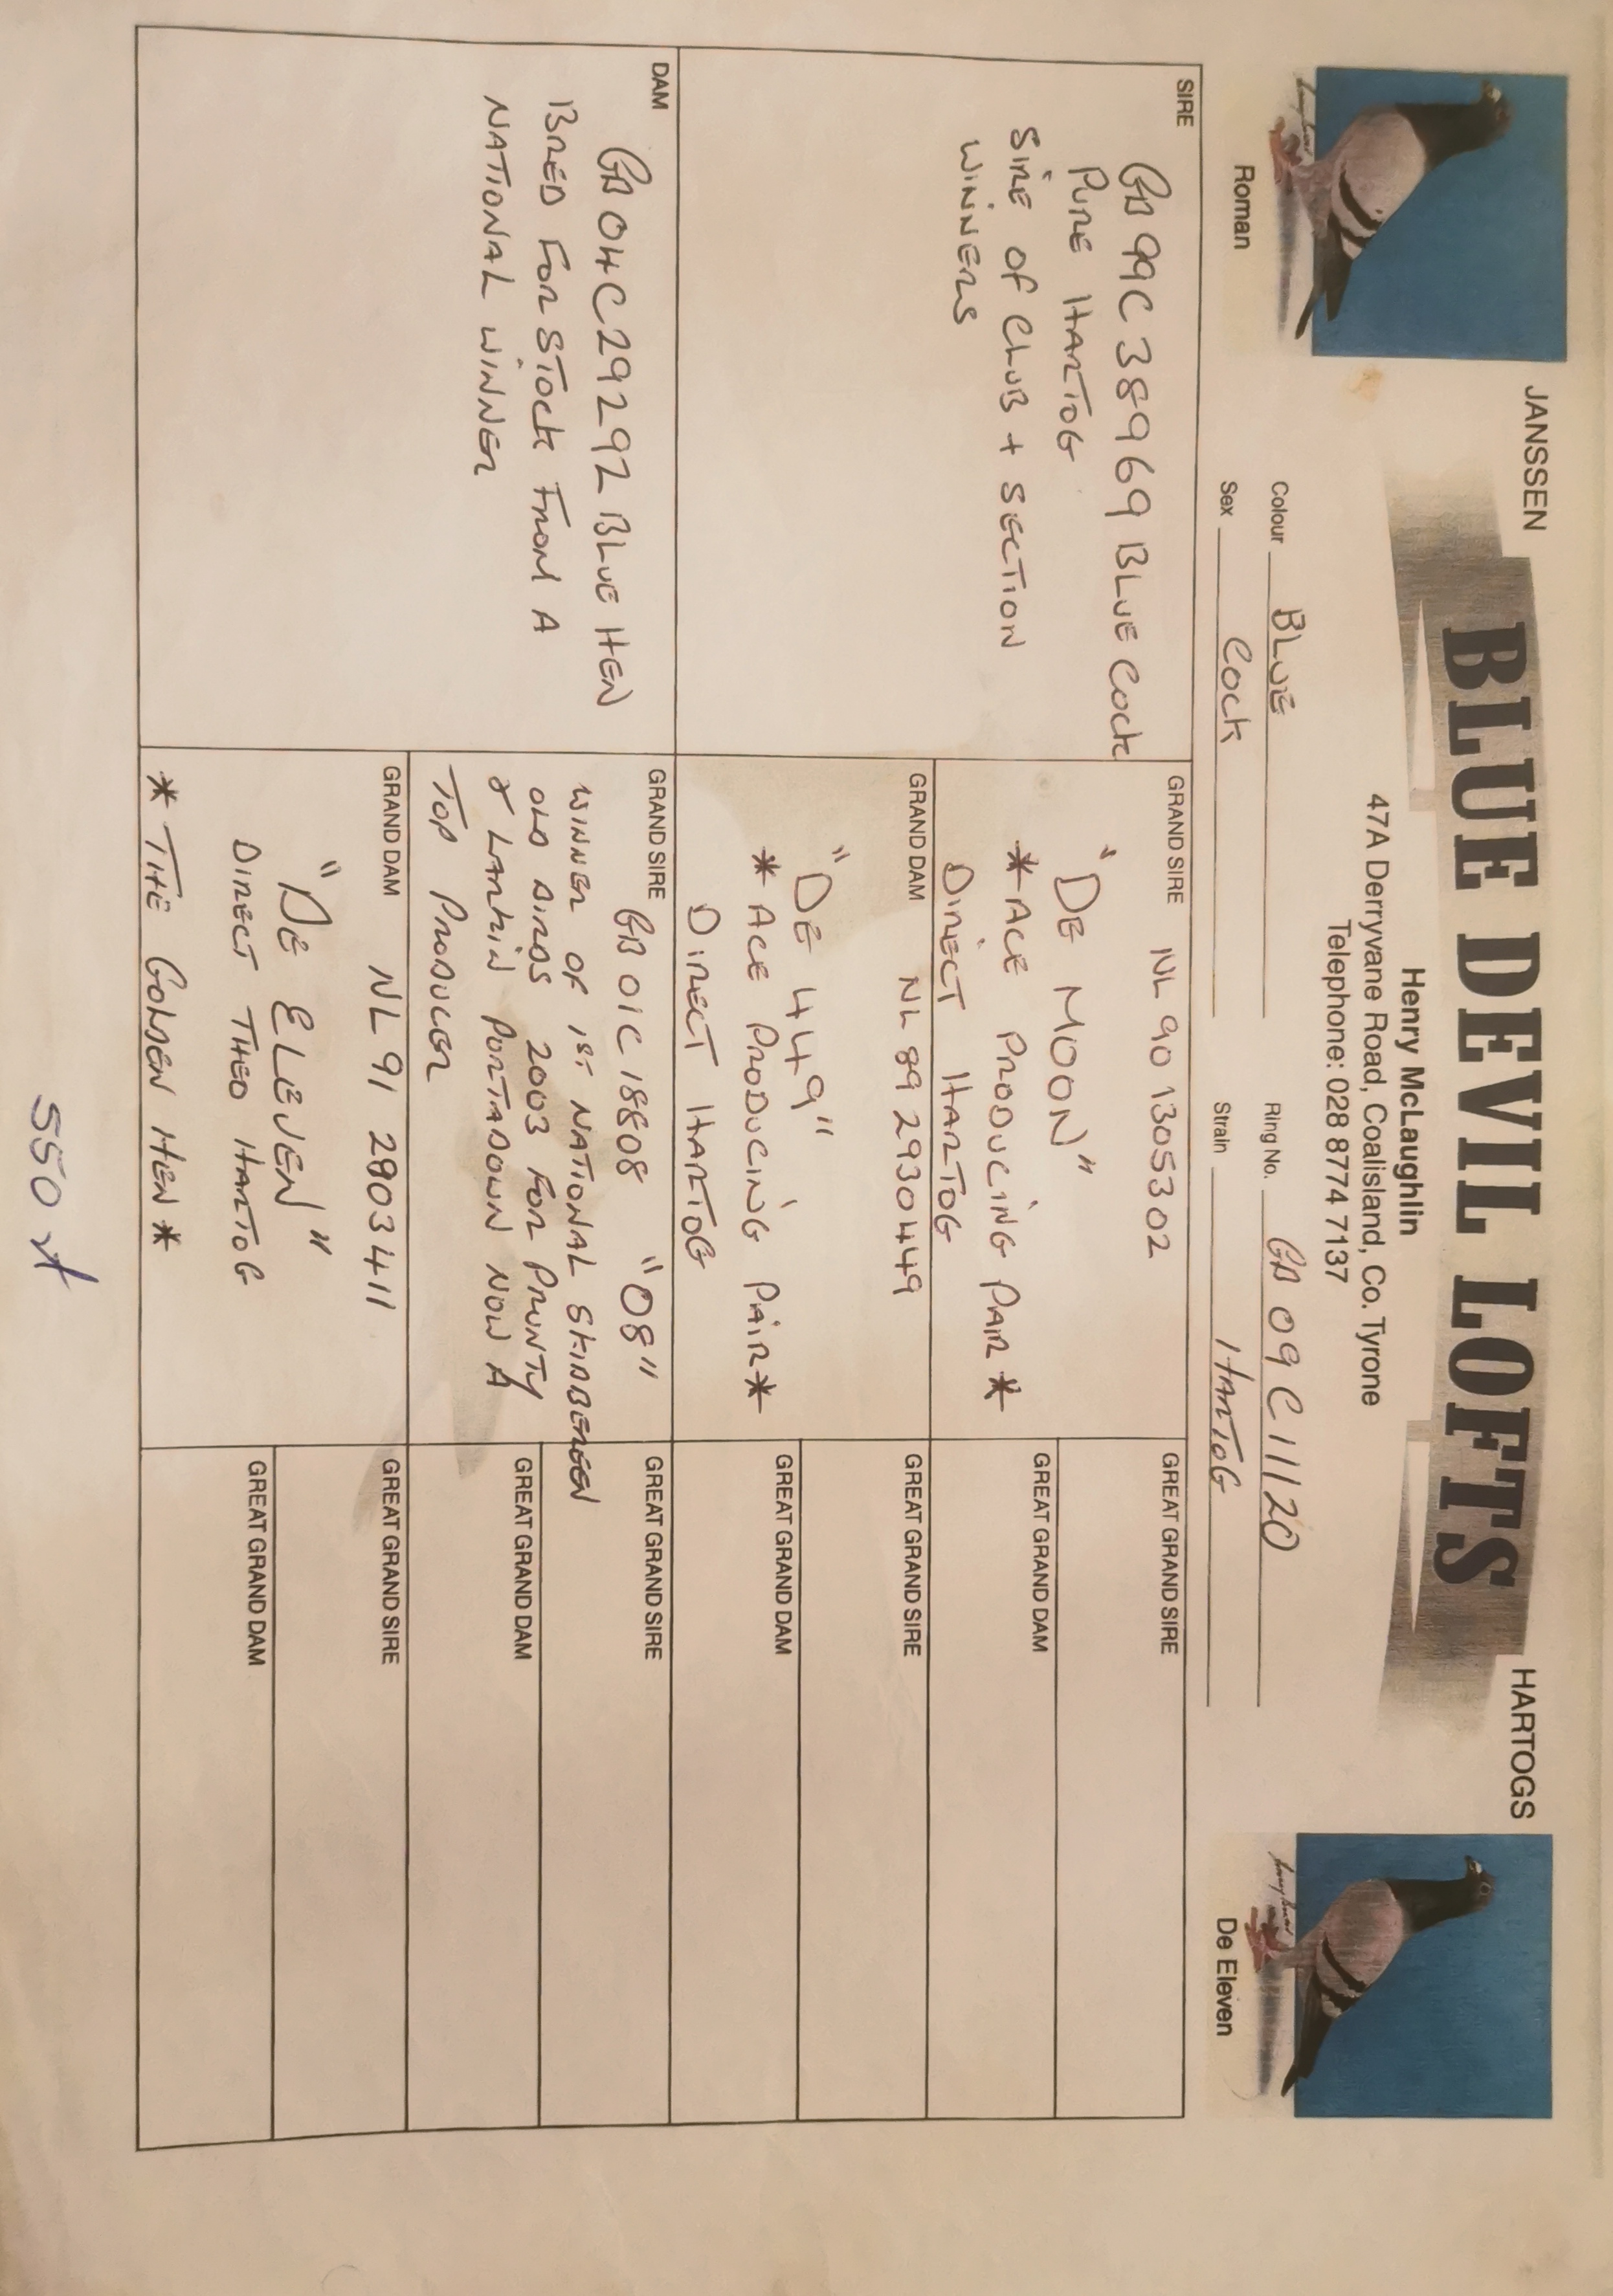 JANSSEN
BLUE DEVIL LOFTS
HARTOGS
Henry McLaughlin
47A Derryvane Road, Coalisland, Co. Tyrone
Telephone: 028 8774 7137
Roman
De Eleven
Colour BLUE
Ring No. GB 09 C 11120
Sex Cock
Strain HARTOG
SIRE
GB 99C 38969 BLUE Cock
PURE HARTOG
SIRE OF CLUB + SECTION
WINNERS
DAM
GB 04C 29292 BLUE HEN
BRED FOR STOCK FROM A
NATIONAL WINNER
GRAND SIRE NL 90 1305302
"DE MOON"
*ACE PRODUCING PAIR*
DIRECT HARTOG
GRAND DAM NL 89 2930449
"DE 449"
*ACE PRODUCING PAIR*
DIRECT HARTOG
GRAND SIRE GB 01C 18808 "08"
WINNER OF 1ST NATIONAL SKIBBEREEN
OLD BIRDS 2003 FOR PRUNTY
& LARKIN PORTADOWN NOW A
TOP PRODUCER
GRAND DAM NL 91 2803411
"DE ELEVEN"
DIRECT THEO HARTOG
* THE GOLDEN HEN *
GREAT GRAND SIRE
GREAT GRAND DAM
GREAT GRAND SIRE
GREAT GRAND DAM
GREAT GRAND SIRE
GREAT GRAND DAM
GREAT GRAND SIRE
GREAT GRAND DAM
550